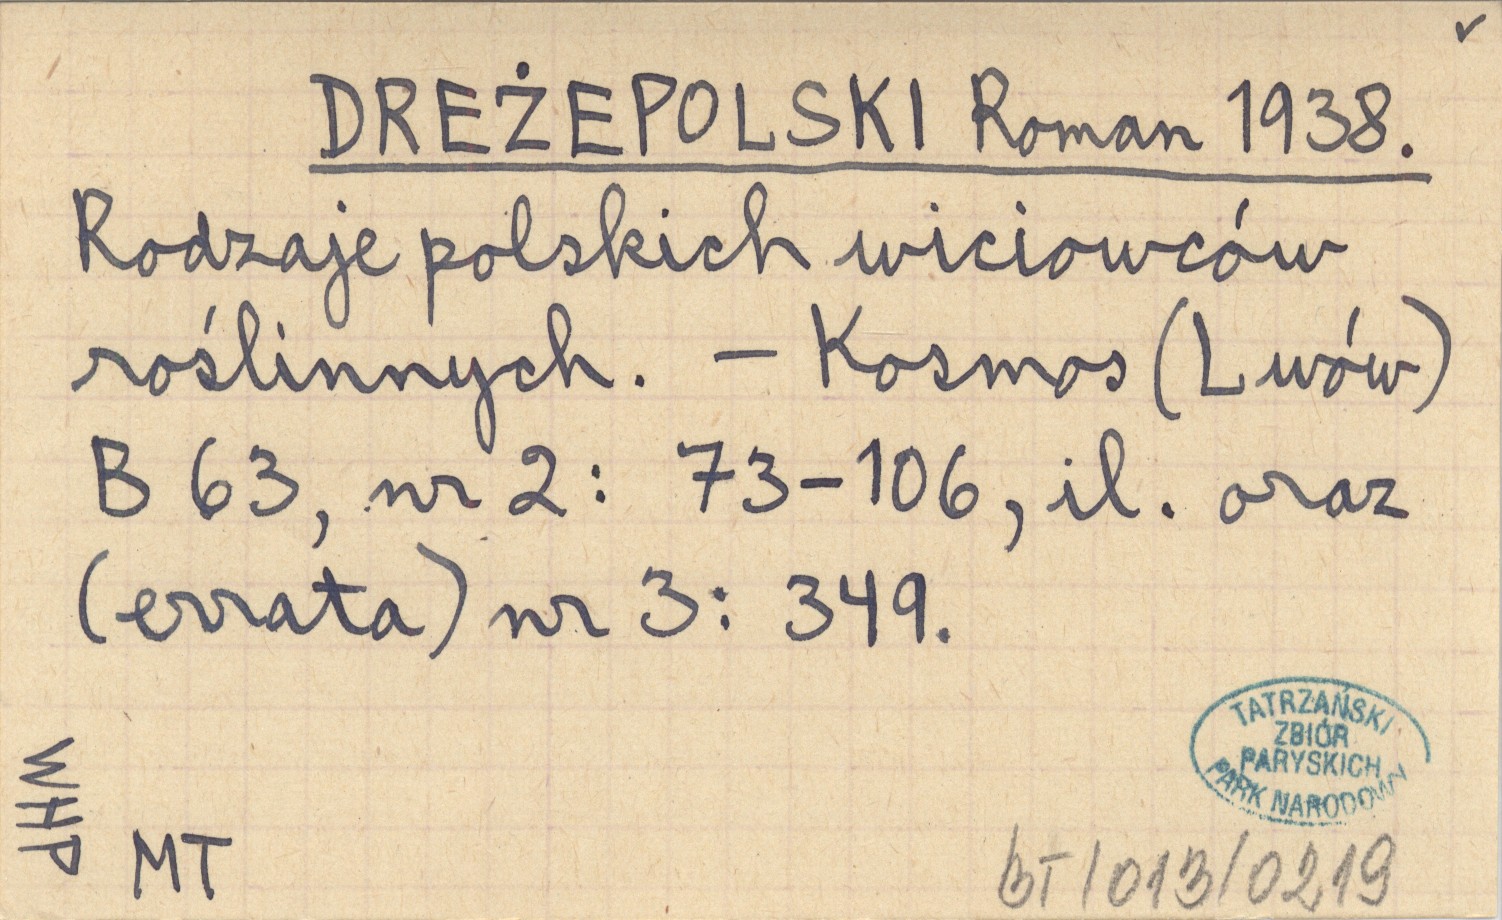 ✓
DREŻEPOLSKI Roman 1938.
Rodzaje polskich wiciowców
roślinnych. – Kosmos (Lwów)
B 63, nr 2: 73–106, il. oraz
(errata) nr 3: 349.
TATRZAŃSKI
ZBIÓR
PARYSKICH
PARK NARODOWY
WHP
MT
BT/013/0219